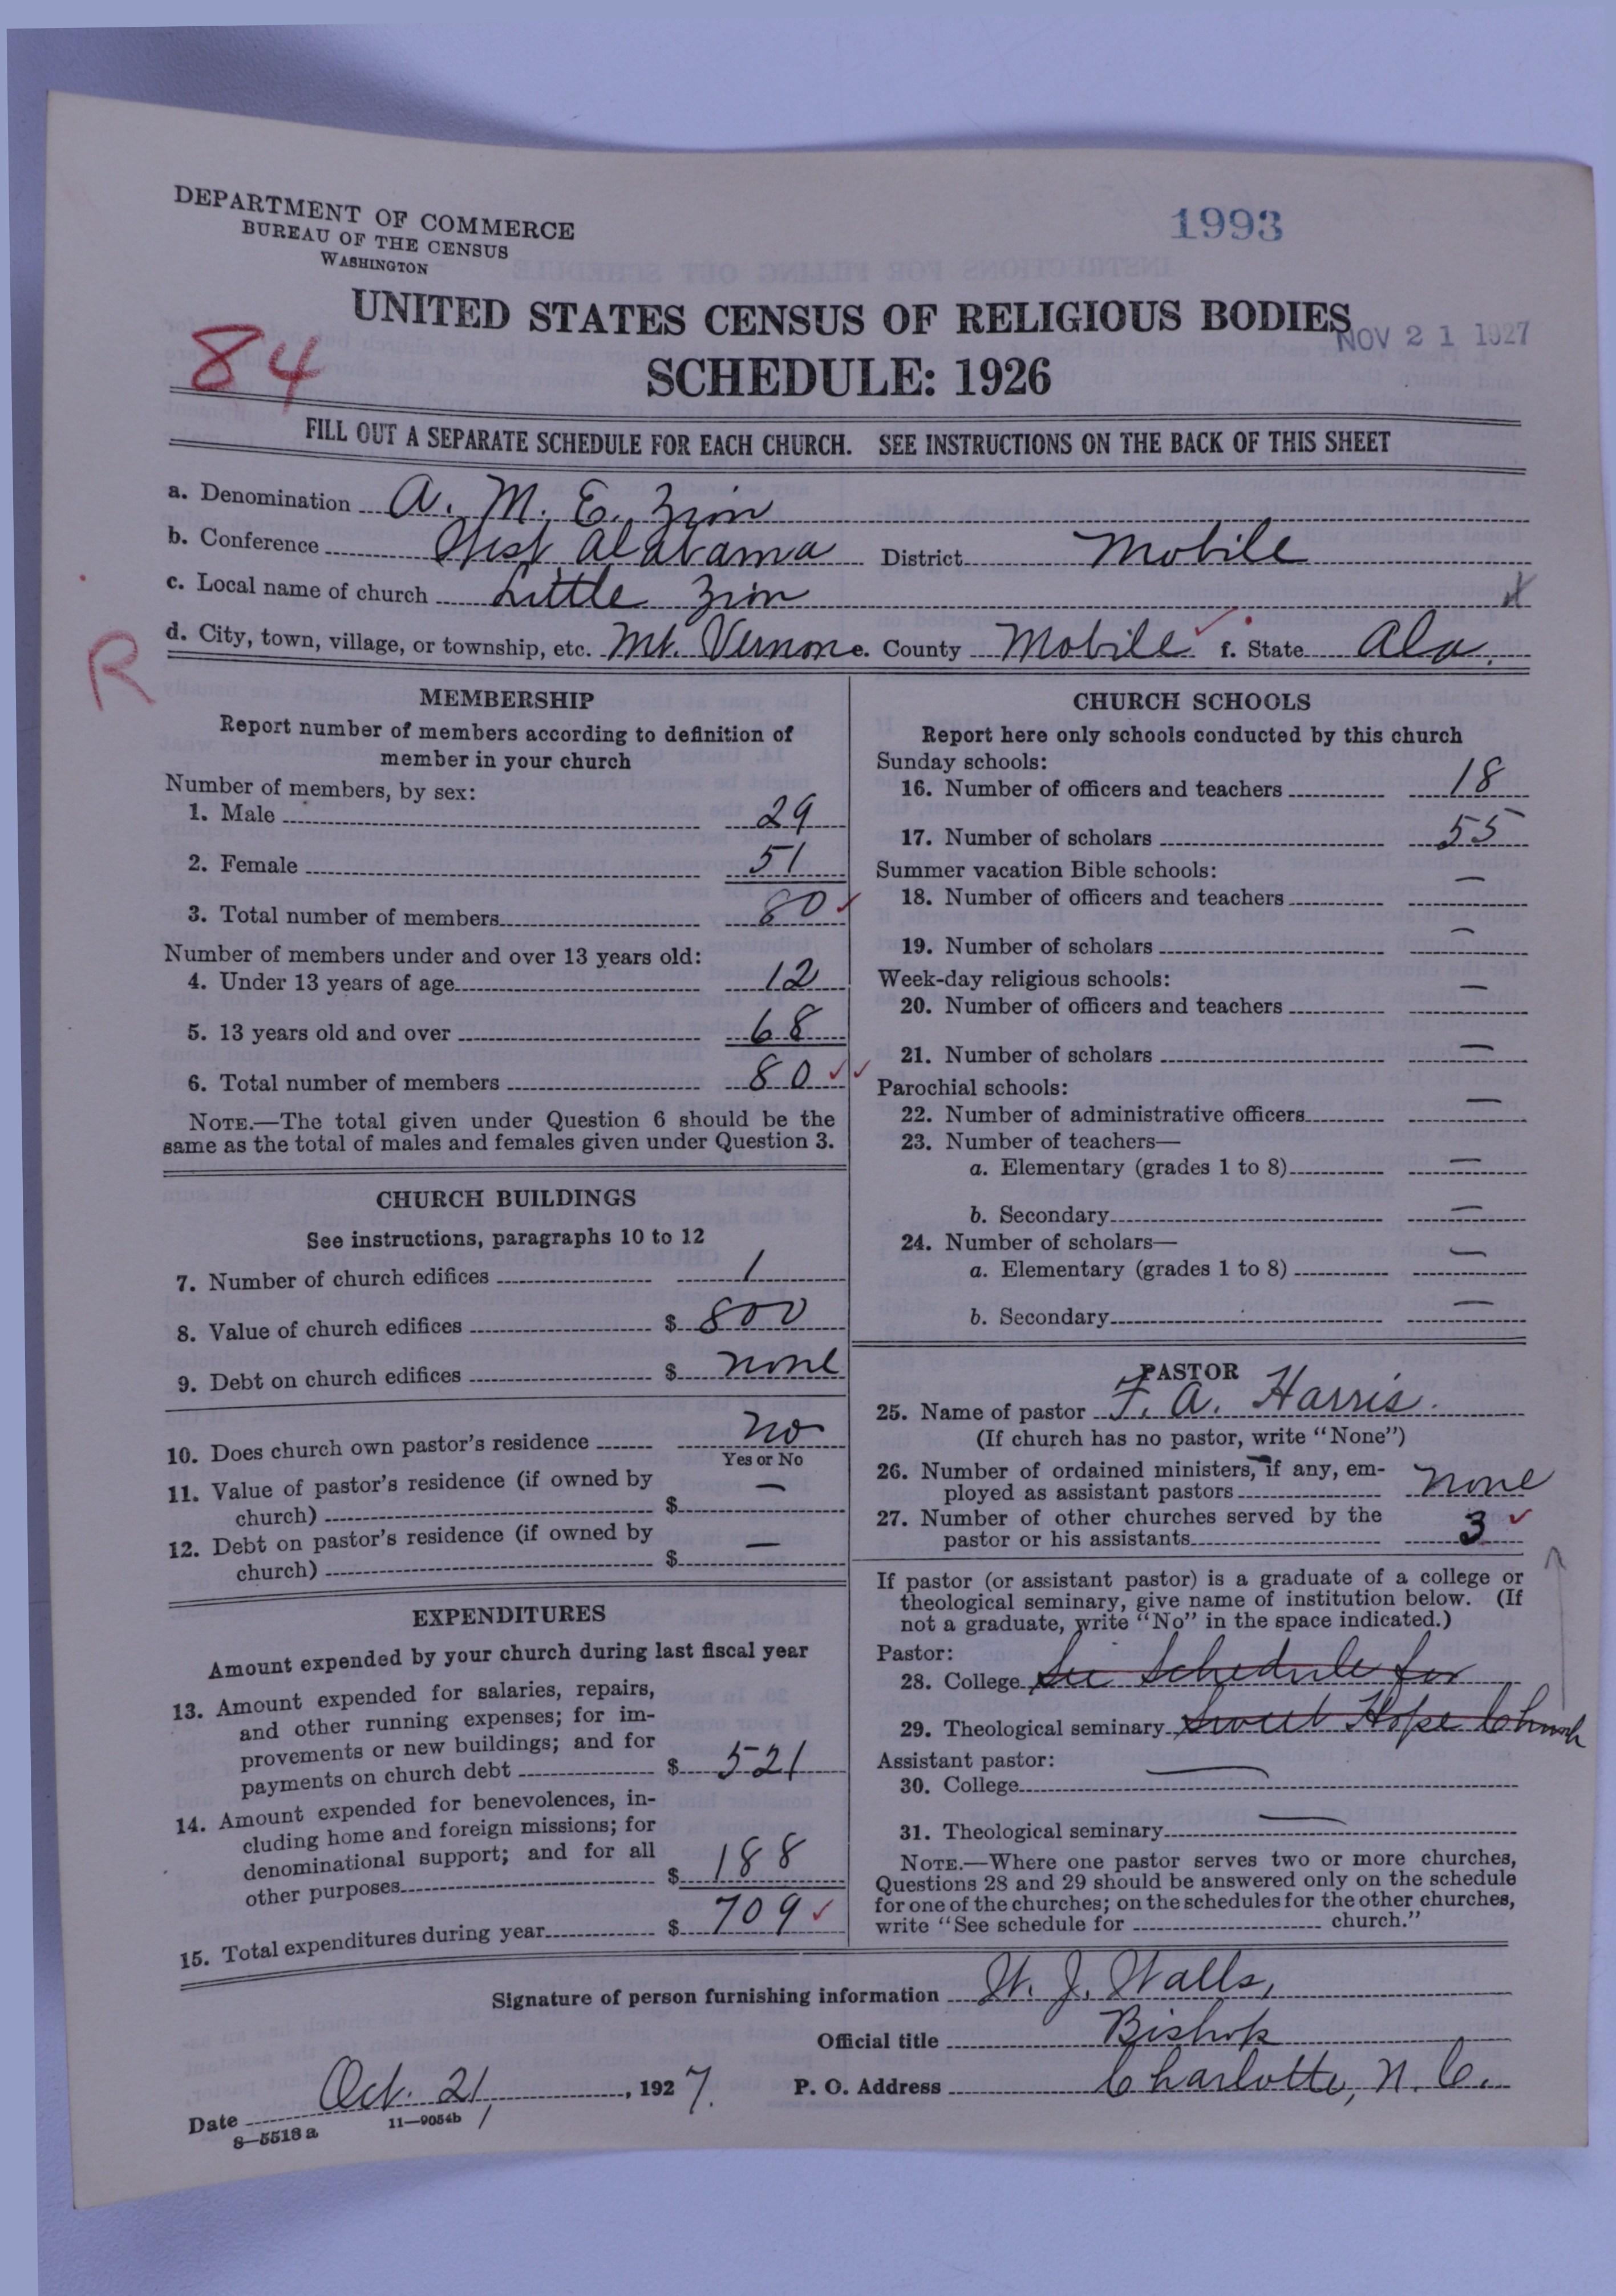 DEPARTMENT OF COMMERCE
BUREAU OF THE CENSUS
WASHINGTON
1993
UNITED STATES CENSUS OF RELIGIOUS BODIES
NOV 21 1927
84
SCHEDULE: 1926
FILL OUT A SEPARATE SCHEDULE FOR EACH CHURCH. SEE INSTRUCTIONS ON THE BACK OF THIS SHEET
a. Denomination A. M. E. Zion
b. Conference West Alabama District Mobile
c. Local name of church Little Zion
d. City, town, village, or township, etc. Mt. Vernon e. County Mobile f. State Ala.
R
MEMBERSHIP
Report number of members according to definition of
member in your church
Number of members, by sex:
1. Male 29
2. Female 51
3. Total number of members 80
Number of members under and over 13 years old:
4. Under 13 years of age 12
5. 13 years old and over 68
6. Total number of members 80
NOTE.—The total given under Question 6 should be the
same as the total of males and females given under Question 3.
CHURCH BUILDINGS
See instructions, paragraphs 10 to 12
7. Number of church edifices 1
8. Value of church edifices $ 800
9. Debt on church edifices $ none
10. Does church own pastor's residence no
Yes or No
11. Value of pastor's residence (if owned by
church) $ —
12. Debt on pastor's residence (if owned by
church) $ —
EXPENDITURES
Amount expended by your church during last fiscal year
13. Amount expended for salaries, repairs,
and other running expenses; for im-
provements or new buildings; and for
payments on church debt $ 521
14. Amount expended for benevolences, in-
cluding home and foreign missions; for
denominational support; and for all
other purposes $ 188
15. Total expenditures during year $ 709
CHURCH SCHOOLS
Report here only schools conducted by this church
Sunday schools:
16. Number of officers and teachers 18
17. Number of scholars 55
Summer vacation Bible schools:
18. Number of officers and teachers —
19. Number of scholars —
Week-day religious schools:
20. Number of officers and teachers —
21. Number of scholars —
Parochial schools:
22. Number of administrative officers —
23. Number of teachers—
a. Elementary (grades 1 to 8) —
b. Secondary —
24. Number of scholars—
a. Elementary (grades 1 to 8) —
b. Secondary —
PASTOR
25. Name of pastor F. A. Harris.
(If church has no pastor, write "None")
26. Number of ordained ministers, if any, em-
ployed as assistant pastors none
27. Number of other churches served by the
pastor or his assistants 3
If pastor (or assistant pastor) is a graduate of a college or
theological seminary, give name of institution below. (If
not a graduate, write "No" in the space indicated.)
Pastor:
28. College See Schedule for
29. Theological seminary Sweet Hope Church
Assistant pastor:
30. College —
31. Theological seminary —
NOTE.—Where one pastor serves two or more churches,
Questions 28 and 29 should be answered only on the schedule
for one of the churches; on the schedules for the other churches,
write "See schedule for ________ church."
Signature of person furnishing information W. J. Walls,
Official title Bishop
Date Oct. 21, 1927. P. O. Address Charlotte, N. C.
8—5518a 11—9054b